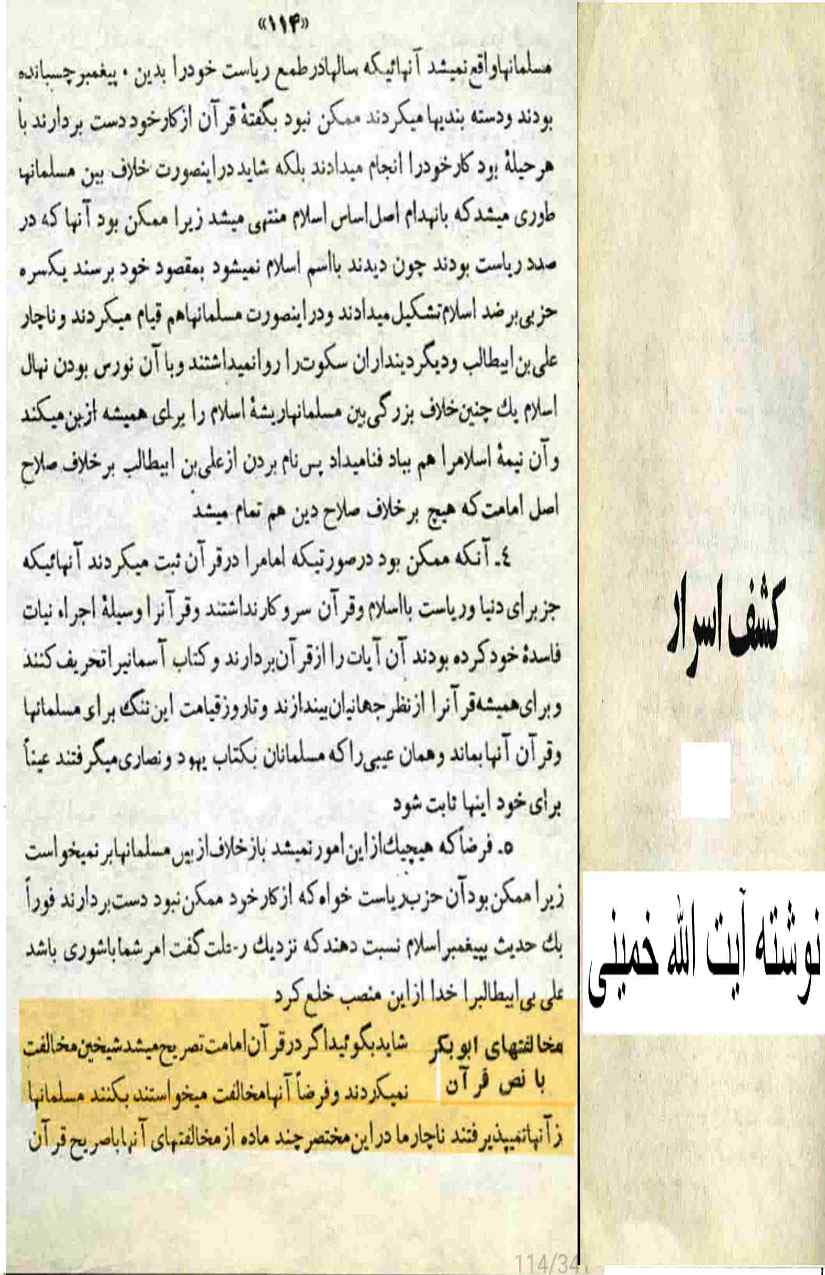 «۱۱۴»
مسلمانها واقع نمیشد آنهائیکه سالها در طمع ریاست خود را بدین ٠ پیغمبر چسبانده
بودند و دسته بندیها میکردند ممکن نبود بگفتهٔ قرآن از کار خود دست بردارند با
هر حیلهٔ بود کار خود را انجام میدادند بلکه شاید در اینصورت خلاف بین مسلمانها
طوری میشد که بانهدام اصل اساس اسلام منتهی میشد زیرا ممکن بود آنها که در
صدد ریاست بودند چون دیدند بااسم اسلام نمیشود بمقصود خود برسند یکسره
حزبی بر ضد اسلام تشکیل میدادند و در اینصورت مسلمانها هم قیام میکردند و ناچار
علی بن ابیطالب و دیگر دینداران سکوت را روا نمیداشتند و با آن نورس بودن نهال
اسلام یك چنین خلاف بزرگی بین مسلمانها ریشهٔ اسلام را برای همیشه از بن میکند
و آن نیمهٔ اسلام را هم بباد فنا میداد پس نام بردن از علی بن ابیطالب بر خلاف صلاح
اصل امامت که هیچ بر خلاف صلاح دین هم تمام میشد
٤ـ آنکه ممکن بود در صورتیکه امام را در قرآن ثبت میکردند آنهائیکه
جز برای دنیا و ریاست با اسلام و قرآن سر و کار نداشتند و قرآن را وسیلهٔ اجراء نیات
فاسدهٔ خود کرده بودند آن آیات را از قرآن بردارند و کتاب آسمانی را تحریف کنند
و برای همیشه قرآن را از نظر جهانیان بیندازند و تا روز قیامت این ننگ برای مسلمانها
و قرآن آنها بماند و همان عیبی را که مسلمانان بکتاب یهود و نصاری میگرفتند عیناً
برای خود اینها ثابت شود
٥ـ فرضاً که هیچیك از این امور نمیشد باز خلاف از بین مسلمانها بر نمیخواست
زیرا ممکن بود آن حزب ریاست خواه که از کار خود ممکن نبود دست بردارند فوراً
یك حدیث بپیغمبر اسلام نسبت دهند که نزدیك رحلت گفت امر شما با شوری باشد
علی بی ابیطالب را خدا از این منصب خلع کرد
مخالفتهای ابوبکر
با نص قرآن
شاید بگوئید اگر در قرآن امامت تصریح میشد شیخین مخالفت
نمیکردند و فرضاً آنها مخالفت میخواستند بکنند مسلمانها
ز آنها نمیپذیرفتند ناچار ما در این مختصر چند ماده از مخالفتهای آنها با صریح قرآن
کشف اسرار
نوشته آیت الله خمینی